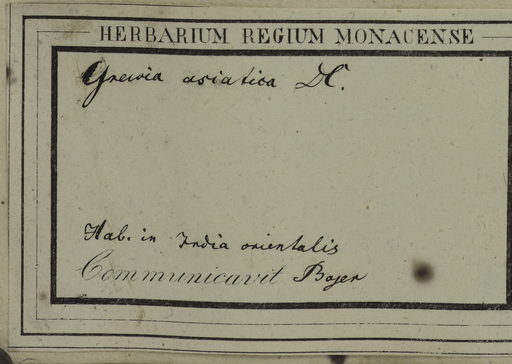 HERBARIUM REGIUM MONACENSE
Grewia asiatica DC.
Hab. in India orientalis
Communicavit Bojer